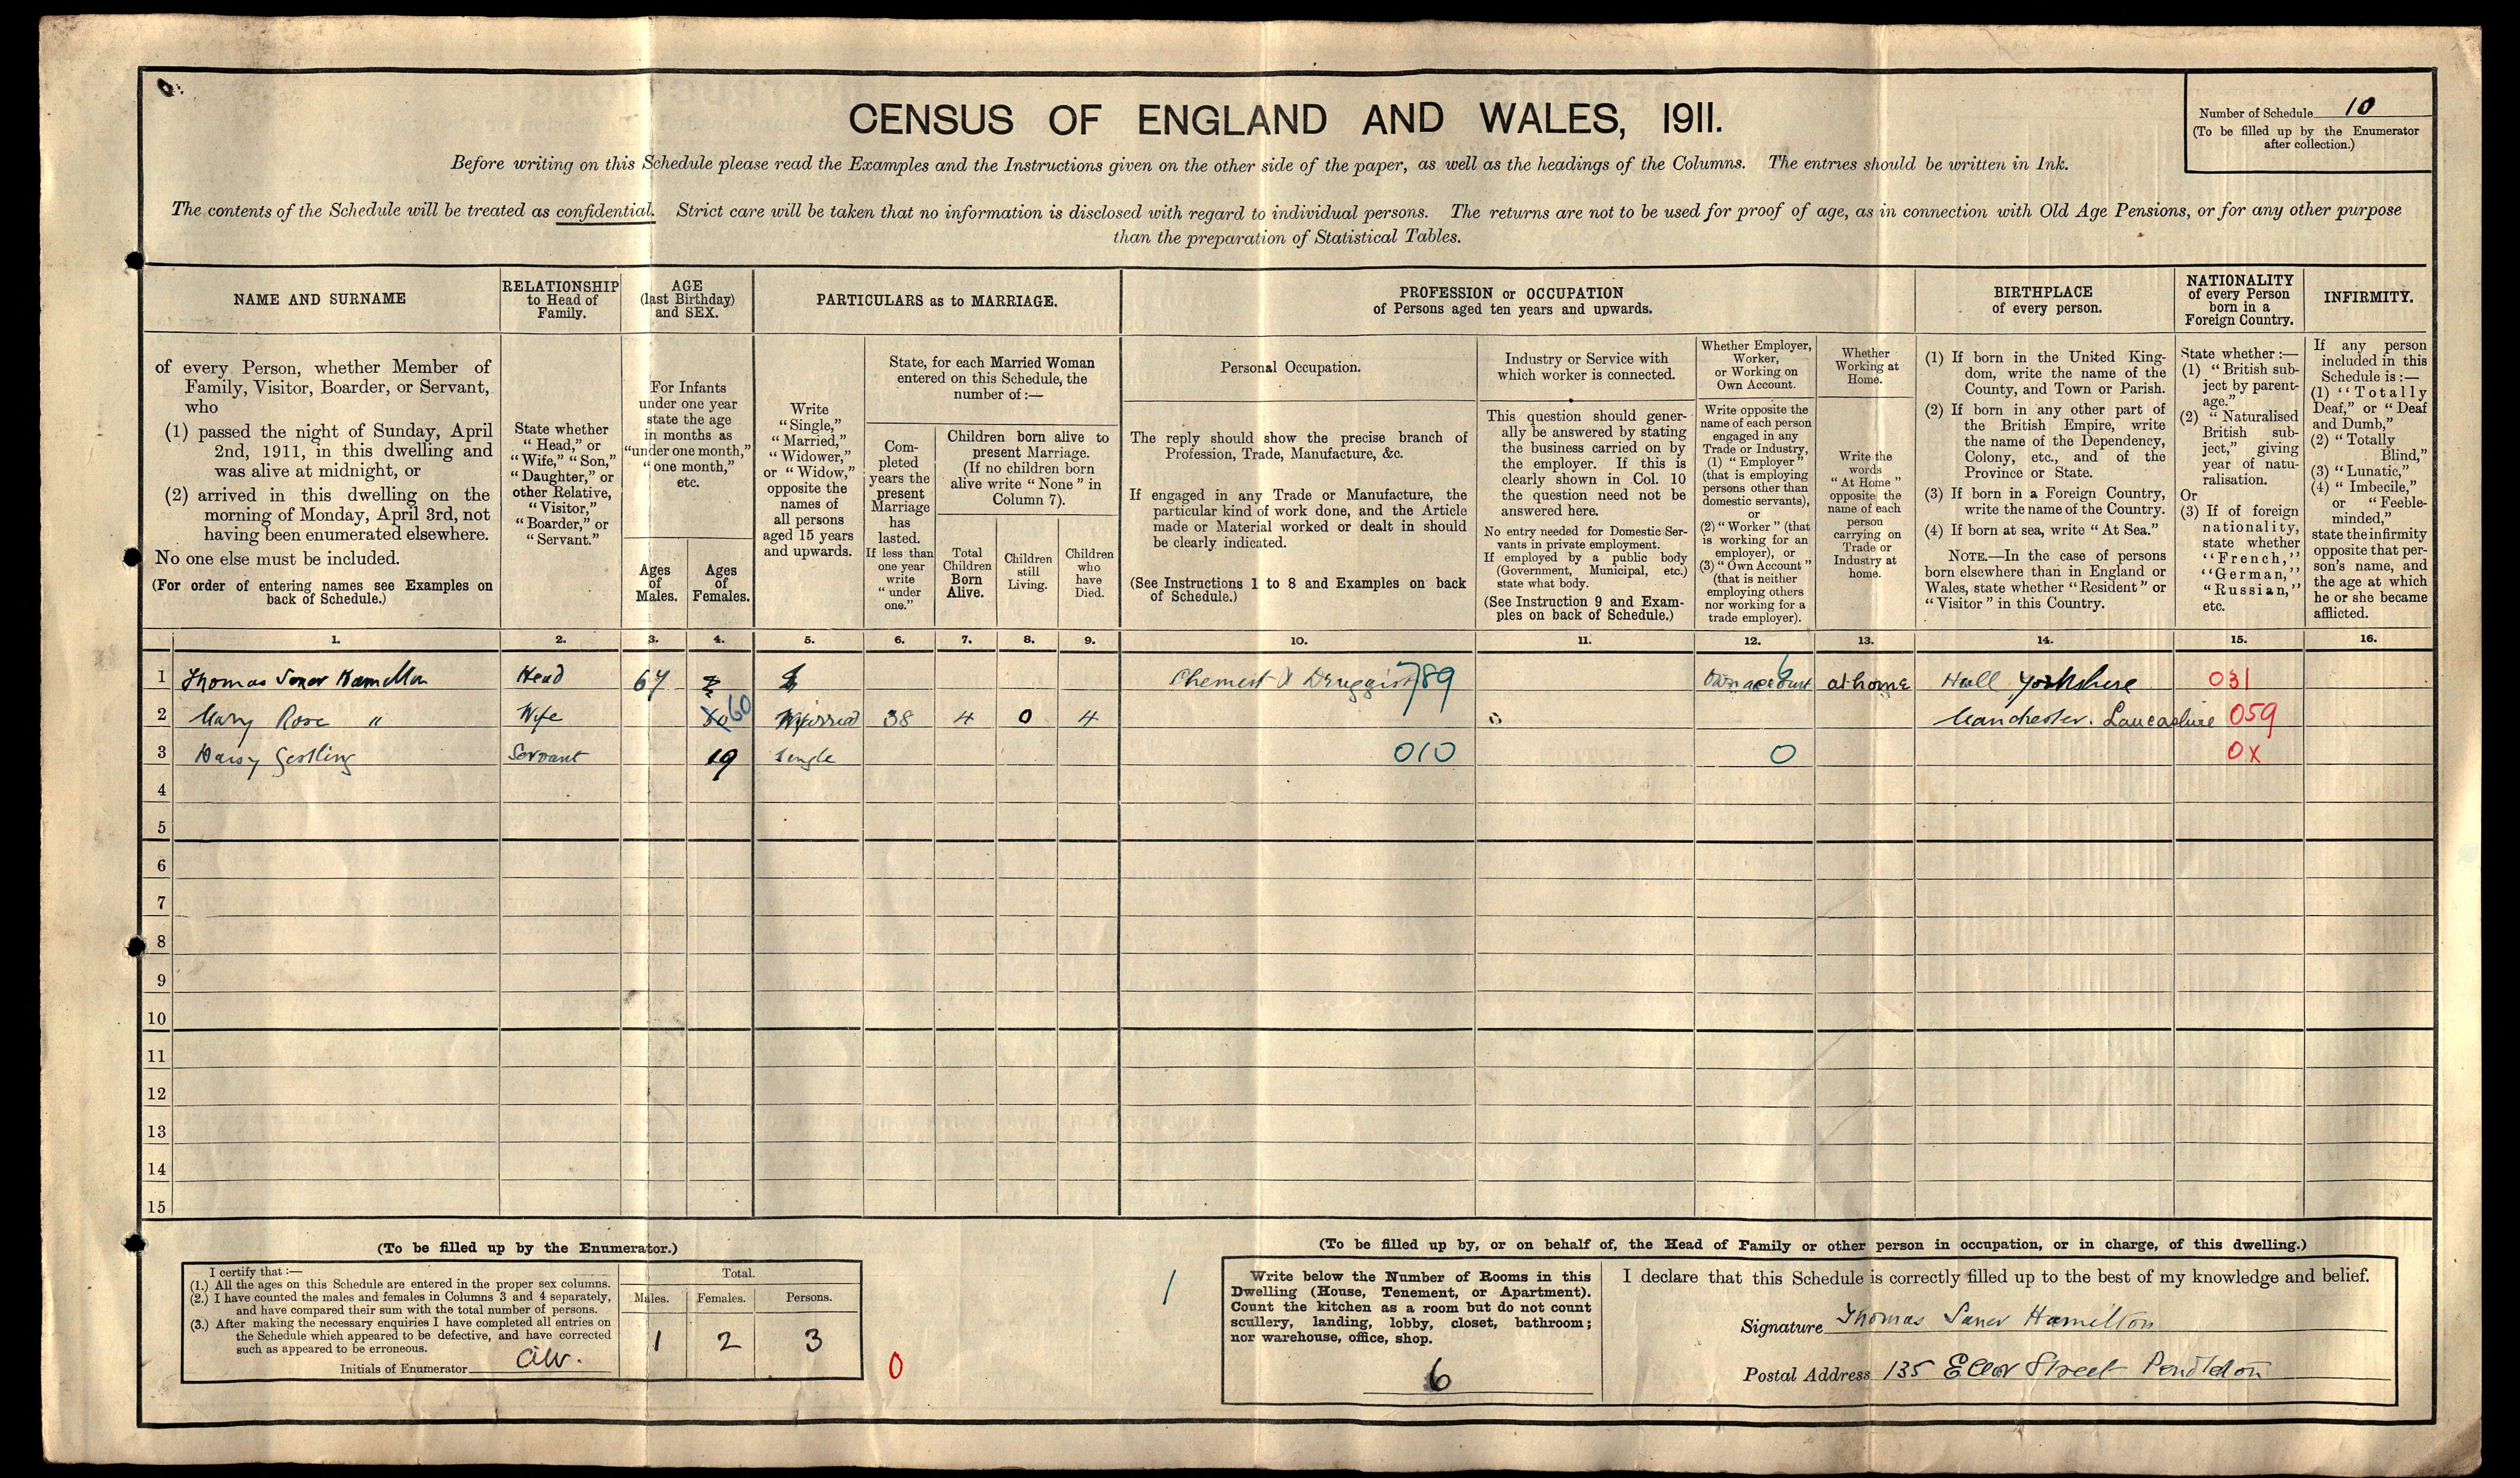 CENSUS OF ENGLAND AND WALES, 1911.
Number of Schedule 10
(To be filled up by the Enumerator
after collection.)
Before writing on this Schedule please read the Examples and the Instructions given on the other side of the paper, as well as the headings of the Columns. The entries should be written in Ink.
The contents of the Schedule will be treated as confidential. Strict care will be taken that no information is disclosed with regard to individual persons. The returns are not to be used for proof of age, as in connection with Old Age Pensions, or for any other purpose
than the preparation of Statistical Tables.
NAME AND SURNAME
of every Person, whether Member of
Family, Visitor, Boarder, or Servant,
who
(1) passed the night of Sunday, April
2nd, 1911, in this dwelling and
was alive at midnight, or
(2) arrived in this dwelling on the
morning of Monday, April 3rd, not
having been enumerated elsewhere.
No one else must be included.
(For order of entering names see Examples on
back of Schedule.)
RELATIONSHIP
to Head of
Family.
State whether
"Head," or
"Wife," "Son,"
"Daughter," or
other Relative,
"Visitor,"
"Boarder," or
"Servant."
AGE
(last Birthday)
and SEX.
For Infants
under one year
state the age
in months as
"under one month,"
"one month,"
etc.
Ages
of
Males.
Ages
of
Females.
PARTICULARS as to MARRIAGE.
Write
"Single,"
"Married,"
"Widower,"
or "Widow,"
opposite the
names of
all persons
aged 15 years
and upwards.
State, for each Married Woman
entered on this Schedule, the
number of:—
Com-
pleted
years the
present
Marriage
has
lasted.
If less than
one year
write
"under
one."
Children born alive to
present Marriage.
(If no children born
alive write "None" in
Column 7).
Total
Children
Born
Alive.
Children
still
Living.
Children
who
have
Died.
PROFESSION or OCCUPATION
of Persons aged ten years and upwards.
Personal Occupation.
The reply should show the precise branch of
Profession, Trade, Manufacture, &c.
If engaged in any Trade or Manufacture, the
particular kind of work done, and the Article
made or Material worked or dealt in should
be clearly indicated.
(See Instructions 1 to 8 and Examples on back
of Schedule.)
Industry or Service with
which worker is connected.
This question should gener-
ally be answered by stating
the business carried on by
the employer. If this is
clearly shown in Col. 10
the question need not be
answered here.
No entry needed for Domestic Ser-
vants in private employment.
If employed by a public body
(Government, Municipal, etc.)
state what body.
(See Instruction 9 and Exam-
ples on back of Schedule.)
Whether Employer,
Worker,
or Working on
Own Account.
Write opposite the
name of each person
engaged in any
Trade or Industry,
(1) "Employer"
(that is employing
persons other than
domestic servants),
or
(2) "Worker" (that
is working for an
employer), or
(3) "Own Account"
(that is neither
employing others
nor working for a
trade employer).
Whether
Working at
Home.
Write the
words
"At Home"
opposite the
name of each
person
carrying on
Trade or
Industry at
home.
BIRTHPLACE
of every person.
(1) If born in the United King-
dom, write the name of the
County, and Town or Parish.
(2) If born in any other part of
the British Empire, write
the name of the Dependency,
Colony, etc., and of the
Province or State.
(3) If born in a Foreign Country,
write the name of the Country.
(4) If born at sea, write "At Sea."
NOTE.—In the case of persons
born elsewhere than in England or
Wales, state whether "Resident" or
"Visitor" in this Country.
NATIONALITY
of every Person
born in a
Foreign Country.
State whether:—
(1) "British sub-
ject by parent-
age."
(2) "Naturalised
British sub-
ject," giving
year of natu-
ralisation.
Or
(3) If of foreign
nationality,
state whether
"French,"
"German,"
"Russian,"
etc.
INFIRMITY.
If any person
included in this
Schedule is:—
(1) "Totally
Deaf," or "Deaf
and Dumb,"
(2) "Totally
Blind,"
(3) "Lunatic,"
(4) "Imbecile,"
or "Feeble-
minded,"
state the infirmity
opposite that per-
son's name, and
the age at which
he or she became
afflicted.
1. 2. 3. 4. 5. 6. 7. 8. 9. 10. 11. 12. 13. 14. 15. 16.
1 Thomas Saner Hamilton Head 67 Chemist & Druggist 789 Own account 6 at home Hull Yorkshire 031
2 Mary Rose " Wife 60 Married 38 4 0 4 Manchester. Lancashire 059
3 Daisy Gostling Servant 19 Single 010 0 0x
4
5
6
7
8
9
10
11
12
13
14
15
(To be filled up by the Enumerator.)
I certify that:—
(1.) All the ages on this Schedule are entered in the proper sex columns.
(2.) I have counted the males and females in Columns 3 and 4 separately,
and have compared their sum with the total number of persons.
(3.) After making the necessary enquiries I have completed all entries on
the Schedule which appeared to be defective, and have corrected
such as appeared to be erroneous.
Initials of Enumerator
Total.
Males. Females. Persons.
1 2 3
0
1
(To be filled up by, or on behalf of, the Head of Family or other person in occupation, or in charge, of this dwelling.)
Write below the Number of Rooms in this
Dwelling (House, Tenement, or Apartment).
Count the kitchen as a room but do not count
scullery, landing, lobby, closet, bathroom;
nor warehouse, office, shop.
6
I declare that this Schedule is correctly filled up to the best of my knowledge and belief.
Signature Thomas Saner Hamilton
Postal Address 135 Ellor Street Pendleton